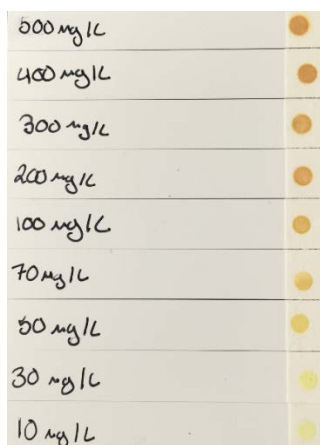 500 mg/L
400 mg/L
300 mg/L
200 mg/L
100 mg/L
70 mg/L
50 mg/L
30 mg/L
10 mg/L